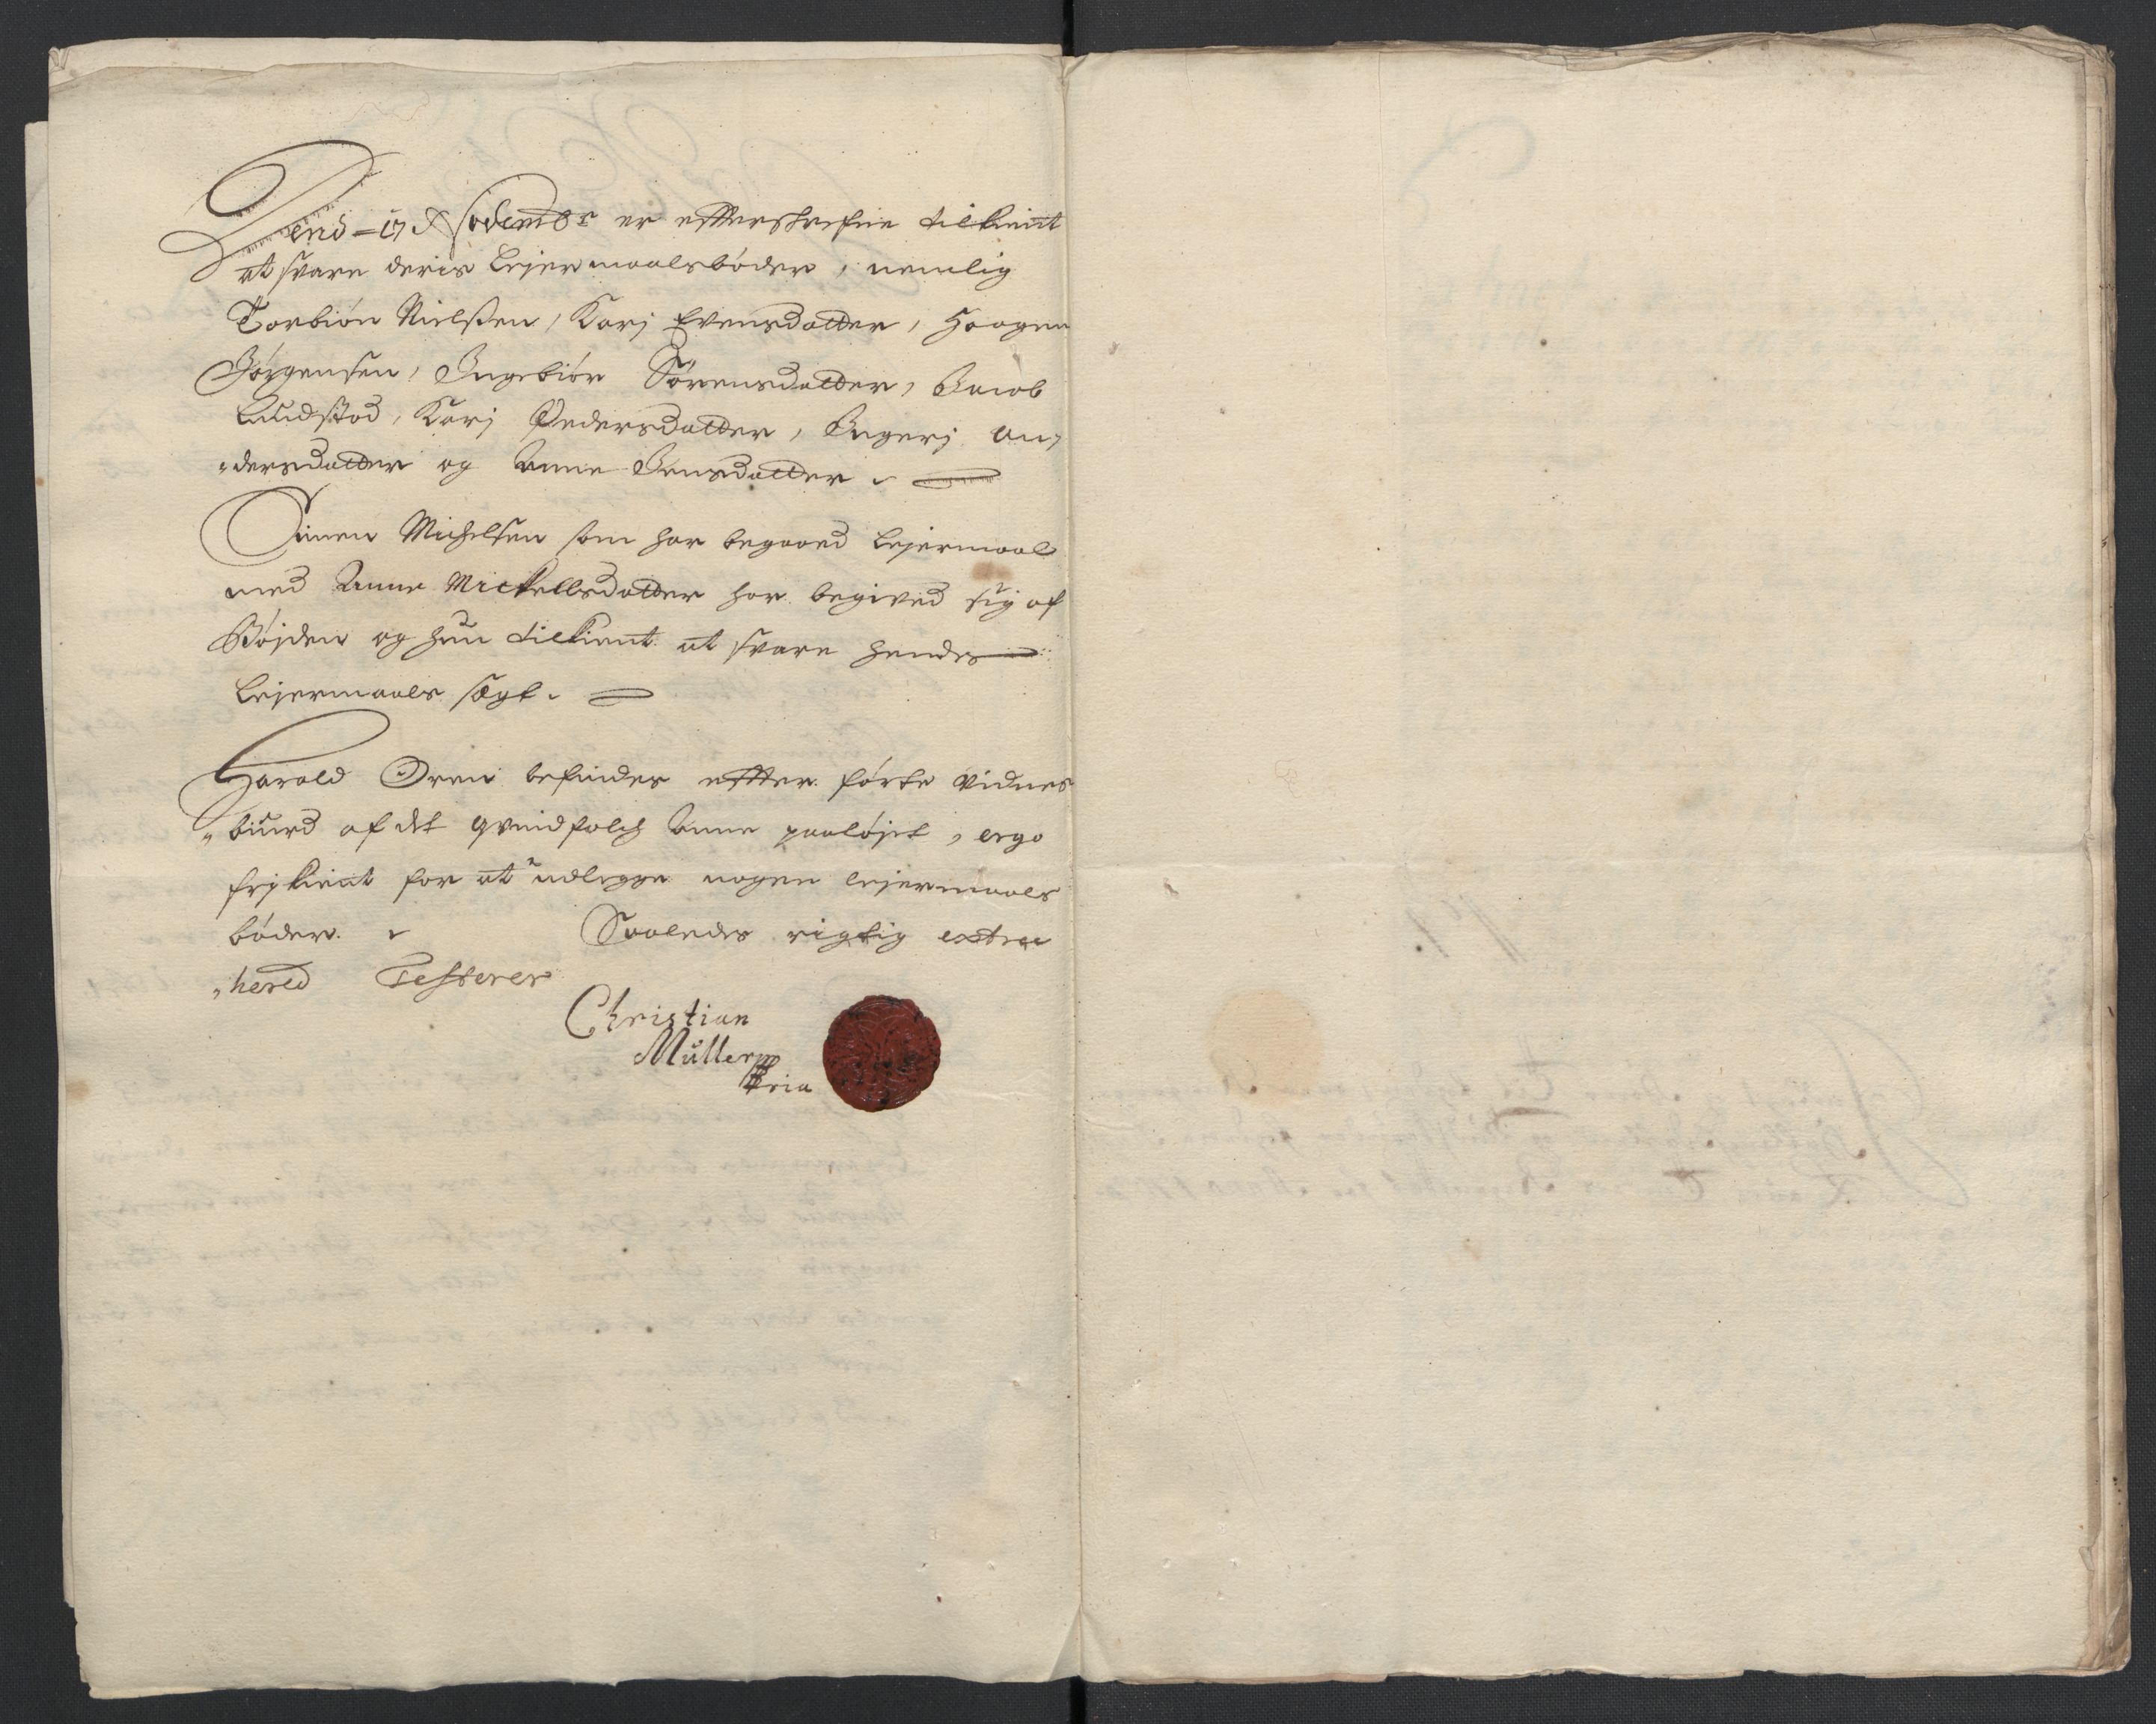 Dend =17 Novembr er effterskrefne tilkient
at svare deris Lejermaalsbøder, nemlig
Torbiøn Nielsen, Karj Evensdatter, Haagen
Jørgensen, Ingebiør Sørensdatter, Jacob
Lundstod, Karj Pedersdatter, Ingerj An,
dersdatter og Anne Jensdatter
Simen Michelsen som har begaaed Lejermaal
med Anne Mickelsdatter har begived sig af
Bøjden og hun tilkient at svare hendes
Lejermaals sagt.
Harald Oren befindes effter førte vidnes
biurd af det qvindfolch Anne paaløjet, ergo
frj kient for at udlegge nogen lejermaals
bøder. Saaledes rigtig extra
hered Testerer
Christian
Müller